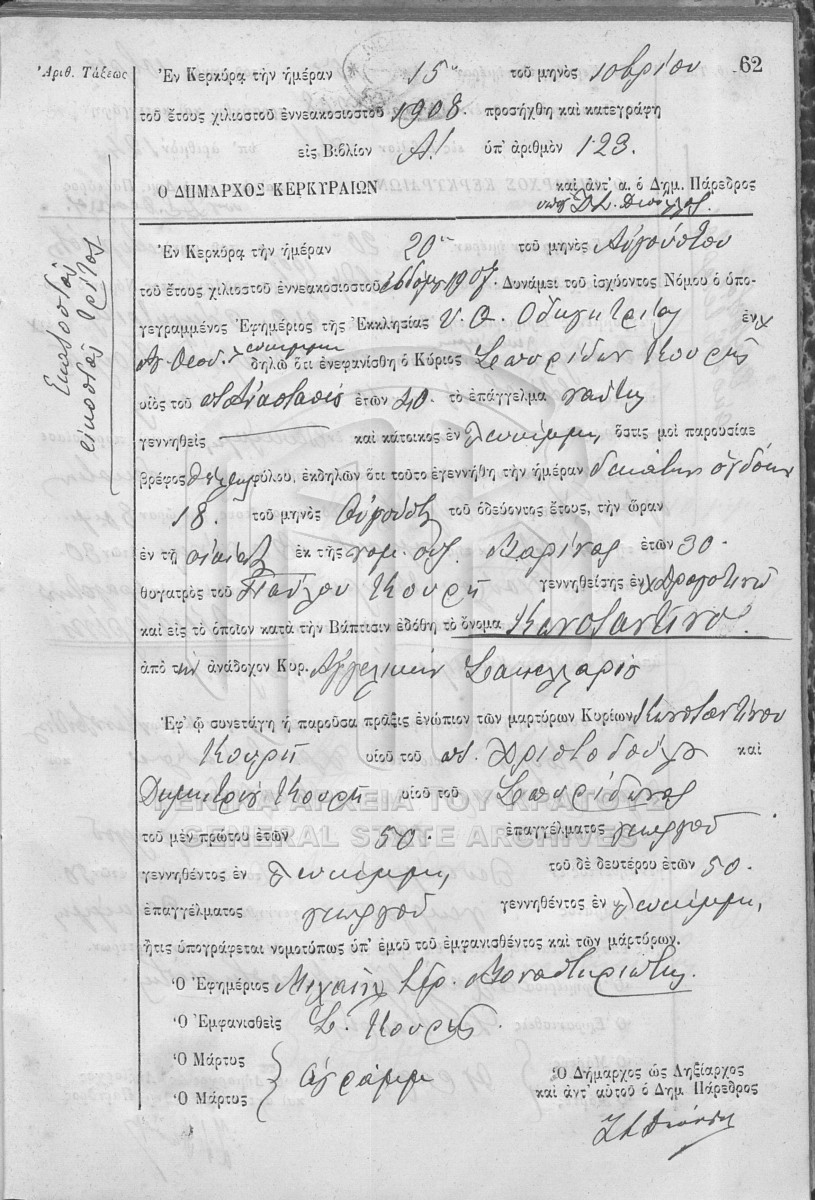 62
Ἀριθ. Τάξεως
Ἐν Κερκύρᾳ τὴν ἡμέραν 15ην τοῦ μηνὸς 10βρίου
τοῦ ἔτους χιλιοστοῦ ἐννεακοσιοστοῦ 1908. προσήχθη καὶ κατεγράφη
εἰς Βιβλίον Α! ὑπ' ἀριθμὸν 123.
Ὁ ΔΗΜΑΡΧΟΣ ΚΕΡΚΥΡΑΙΩΝ
καὶ ἀντ' α. ὁ Δημ. Πάρεδρος
Ἑκατοστὸς
εἰκοστὸς τρίτος
Ἐν Κερκύρᾳ τὴν ἡμέραν 20ην τοῦ μηνὸς Αὐγούστου
τοῦ ἔτους χιλιοστοῦ ἐννεακοσιοστοῦ 1907. Δυνάμει τοῦ ἰσχύοντος Νόμου ὁ ὑπο-
γεγραμμένος Ἐφημέριος τῆς Ἐκκλησίας Υ. Θ. Ὁδηγητρίας ἐν χ
Αγ. Θεοδ. Λευκίμμη δηλῶ ὅτι ἐνεφανίσθη ὁ Κύριος Σπυρίδων Κουρῆς
υἱὸς τοῦ ποτ Ἀναστασίου ἐτῶν 40. τὸ ἐπάγγελμα ναύτης
γεννηθεὶς καὶ κάτοικος ἐν Λευκίμμη, ὅστις μοὶ παρουσίασε
βρέφος φύλου, ἐκδηλῶν ὅτι τοῦτο ἐγεννήθη τὴν ἡμέραν δεκάτην ὀγδόην
18. τοῦ μηνὸς Αὐγούστου τοῦ ὁδεύοντος ἔτους, τὴν ὥραν
ἐν τῇ οἰκίᾳ ἐκ τῆς νομ. συζ. Μαρίνας ἐτῶν 30.
θυγατρὸς τοῦ Παύλου Κουρῆ γεννηθείσης ἐν
καὶ εἰς τὸ ὁποῖον κατὰ τὴν Βάπτισιν ἐδόθη τὸ ὄνομα Κωνσταντῖνος.
ἀπὸ την ἀνάδοχον Κυρ. Ἀγγελικὴν Σακελλαρίου
Ἐφ' ᾧ συνετάγη ἡ παροῦσα πρᾶξις ἐνώπιον τῶν μαρτύρων Κυρίων Κωνσταντίνου
Κουρῆ υἱοῦ τοῦ ποτ. Χριστοδούλου καὶ
Δημητρίου Κουρῆ υἱοῦ τοῦ Σπυρίδωνος
τοῦ μὲν πρώτου ἐτῶν 50. ἐπαγγέλματος γεωργοῦ
γεννηθέντος ἐν Λευκίμμη, τοῦ δὲ δευτέρου ἐτῶν 50.
ἐπαγγέλματος γεωργοῦ γεννηθέντος ἐν Λευκίμμη,
ἥτις ὑπογράφεται νομοτύπως ὑπ' ἐμοῦ τοῦ ἐμφανισθέντος καὶ τῶν μαρτύρων.
Ὁ Ἐφημέριος Μιχαὴλ Μοναστηριώτης.
Ὁ Ἐμφανισθεὶς Σ. Κουρῆς.
Ὁ Μάρτυς
Ὁ Μάρτυς
ἀγράμμ
Ὁ Δήμαρχος ὡς Ληξίαρχος
καὶ ἀντ' αὐτοῦ ὁ Δημ. Πάρεδρος
ΓΕΝΙΚΑ ΑΡΧΕΙΑ ΤΟΥ ΚΡΑΤΟΥΣ
GENERAL STATE ARCHIVES